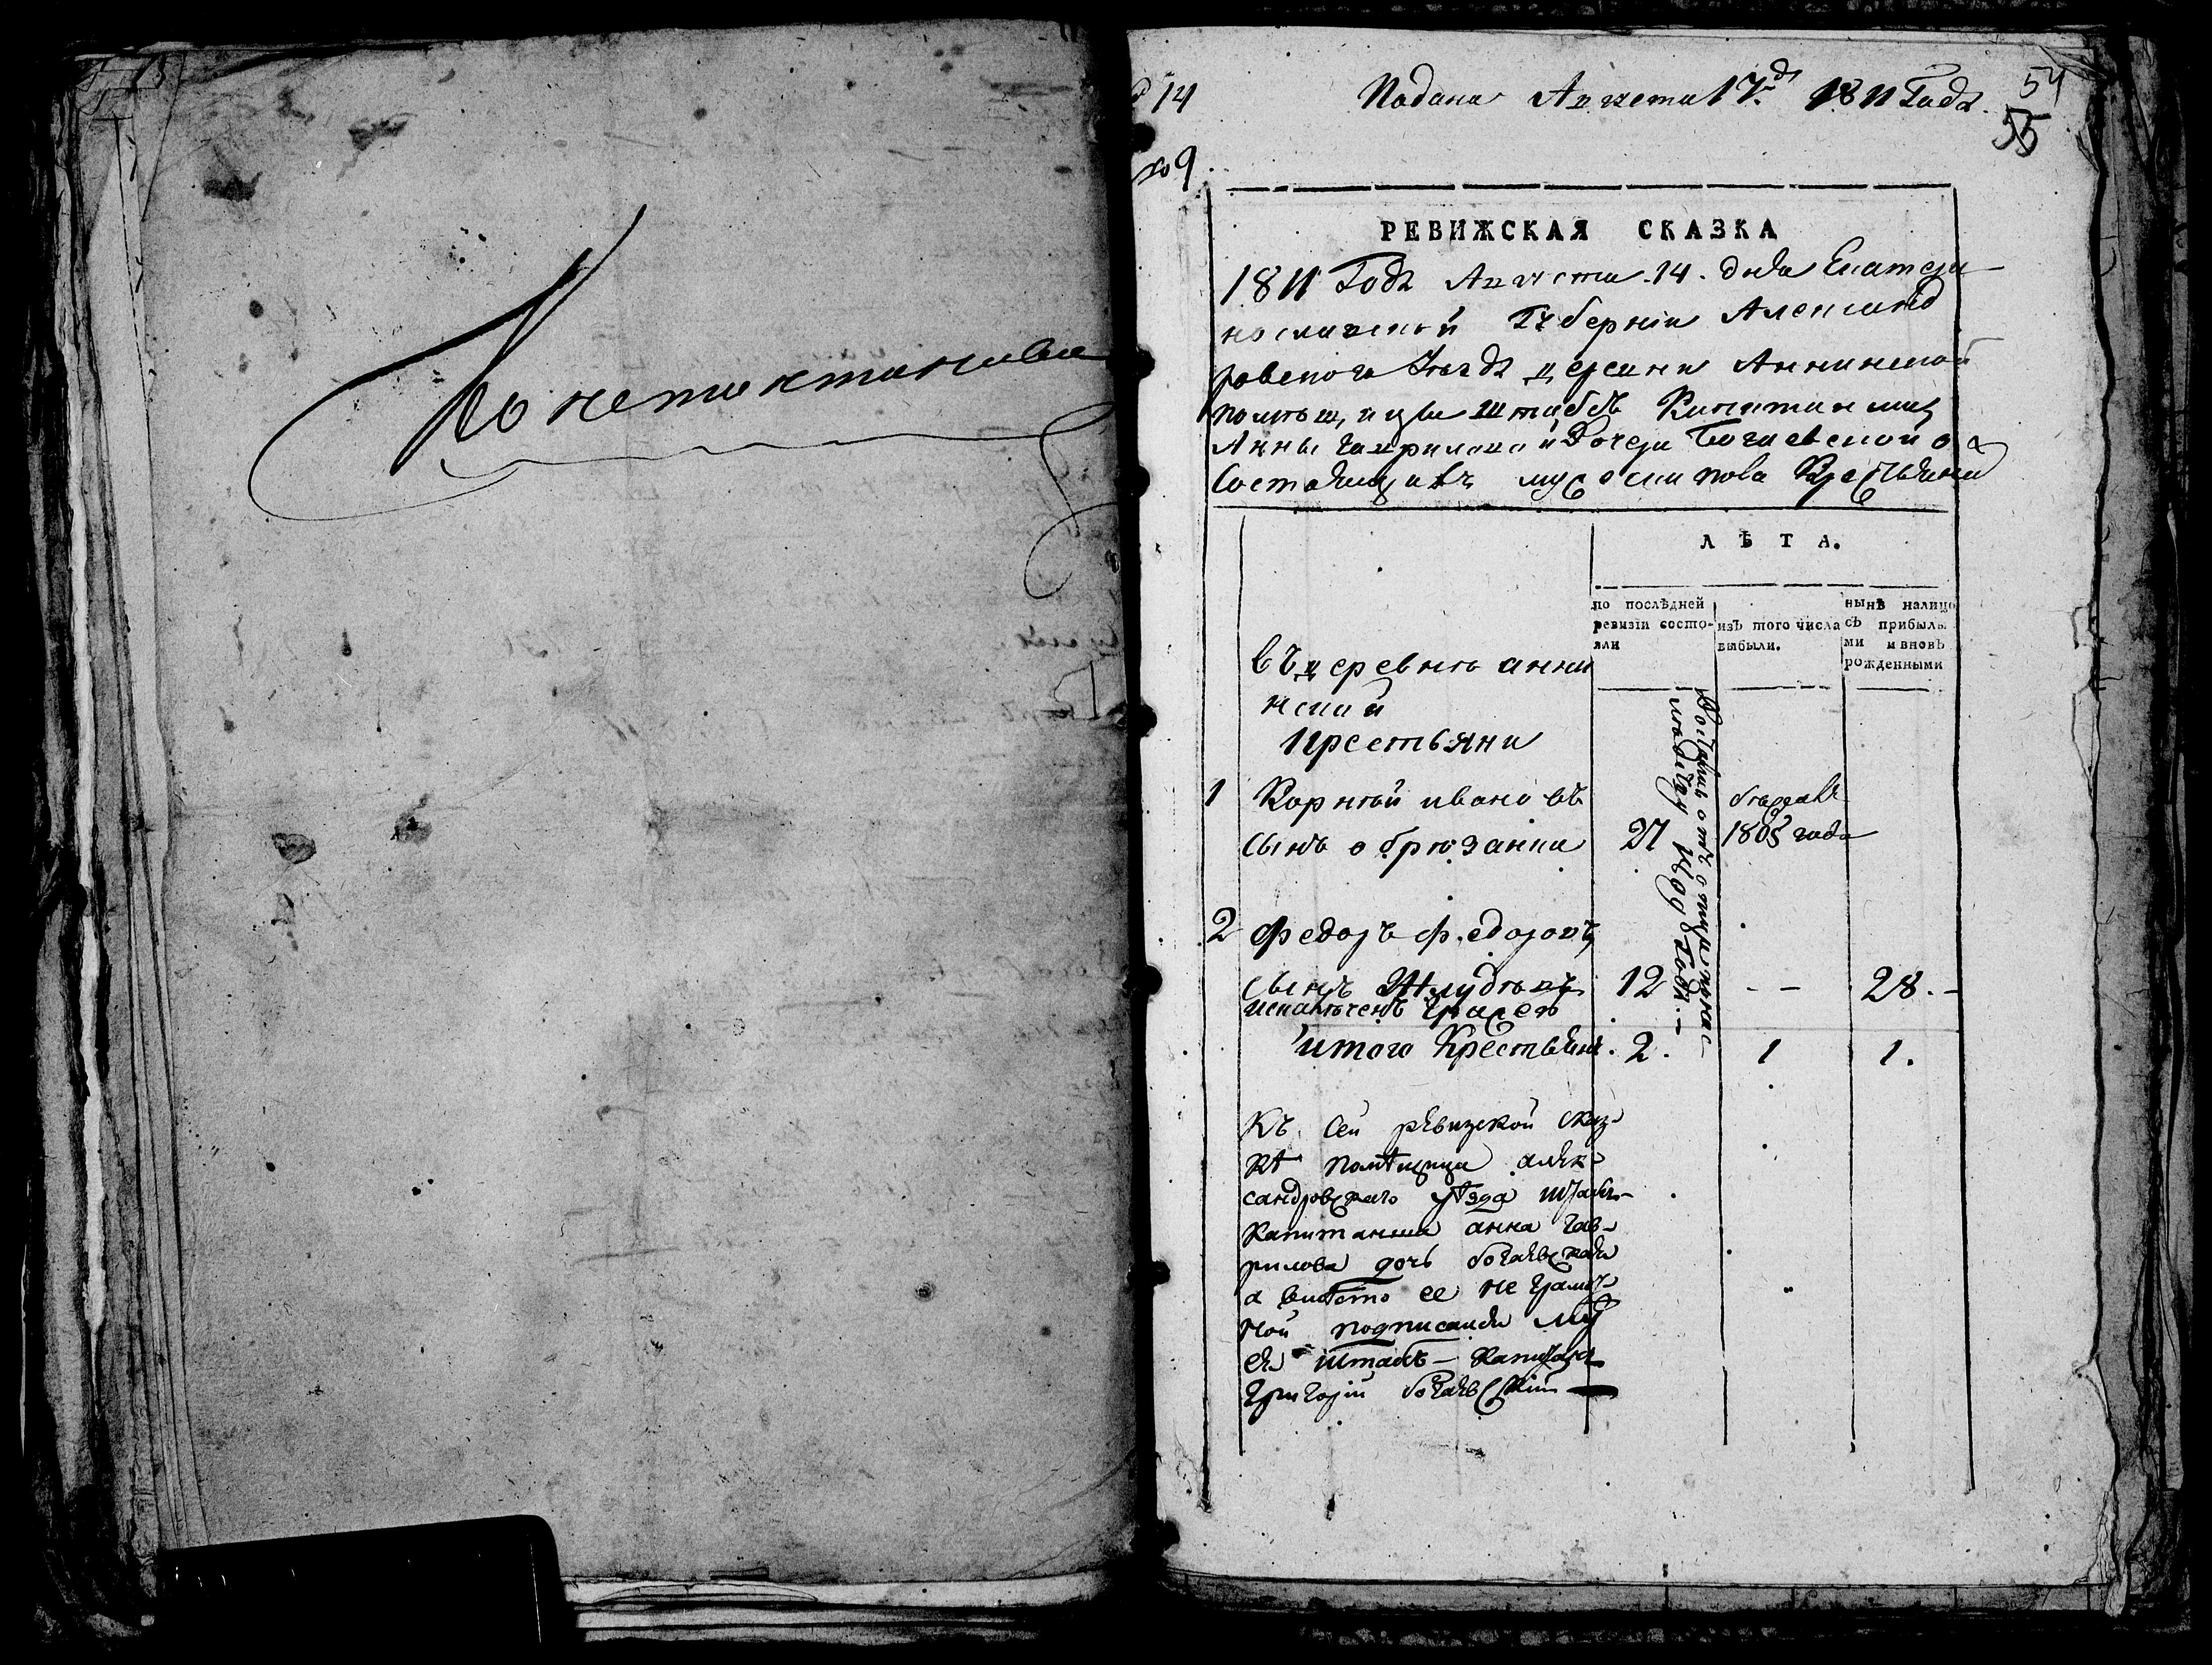 14
Подана Августа 17д. 1811 Года.
54
55
№ 9.
РЕВИЖСКАЯ СКАЗКА
1811 Года Августа 14. дня Екатери
нославской Губерніи Александ
ровского уезда деревни Аннинской
помѣщицы штабсъ Капитанши
Анны Гавриловой Дочери Богаевской о
состоящихъ мужеска пола Крестьянъ
ЛѢТА.
по послѣдней ревизіи состо-яли
изъ того числа выбыли.
нынѣ налицо съ прибылы ми и вновь рожденными
въ деревне анни
нской
крестьяни
1 Корней ивановъ бежалъ
сынъ обрюзанка 27 1805 года
2 федоръ федоровъ
сынъ Жлудковъ 12 - - 28. -
итого Крестьянъ. 2. 1 1.
Къ сей ревизской сказ-
кѣ помѣщица алек-
сандровскаго уѣзда штабсъ-
капитанша анна гав-
рилова дочь богаевская
а вмѣсто ее не грамот-
ной подписался му
ея штабсъ-капитанъ
григорій богаевский